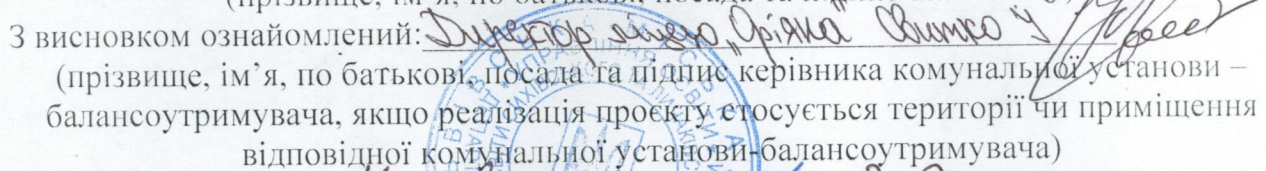 З висновком ознайомлений: Директор ліцею „Оріяна" Свитко У
(прізвище, ім’я, по батькові, посада та підпис керівника комунальної установи –
балансоутримувача, якщо реалізація проєкту стосується території чи приміщення
відповідної комунальної установи-балансоутримувача)